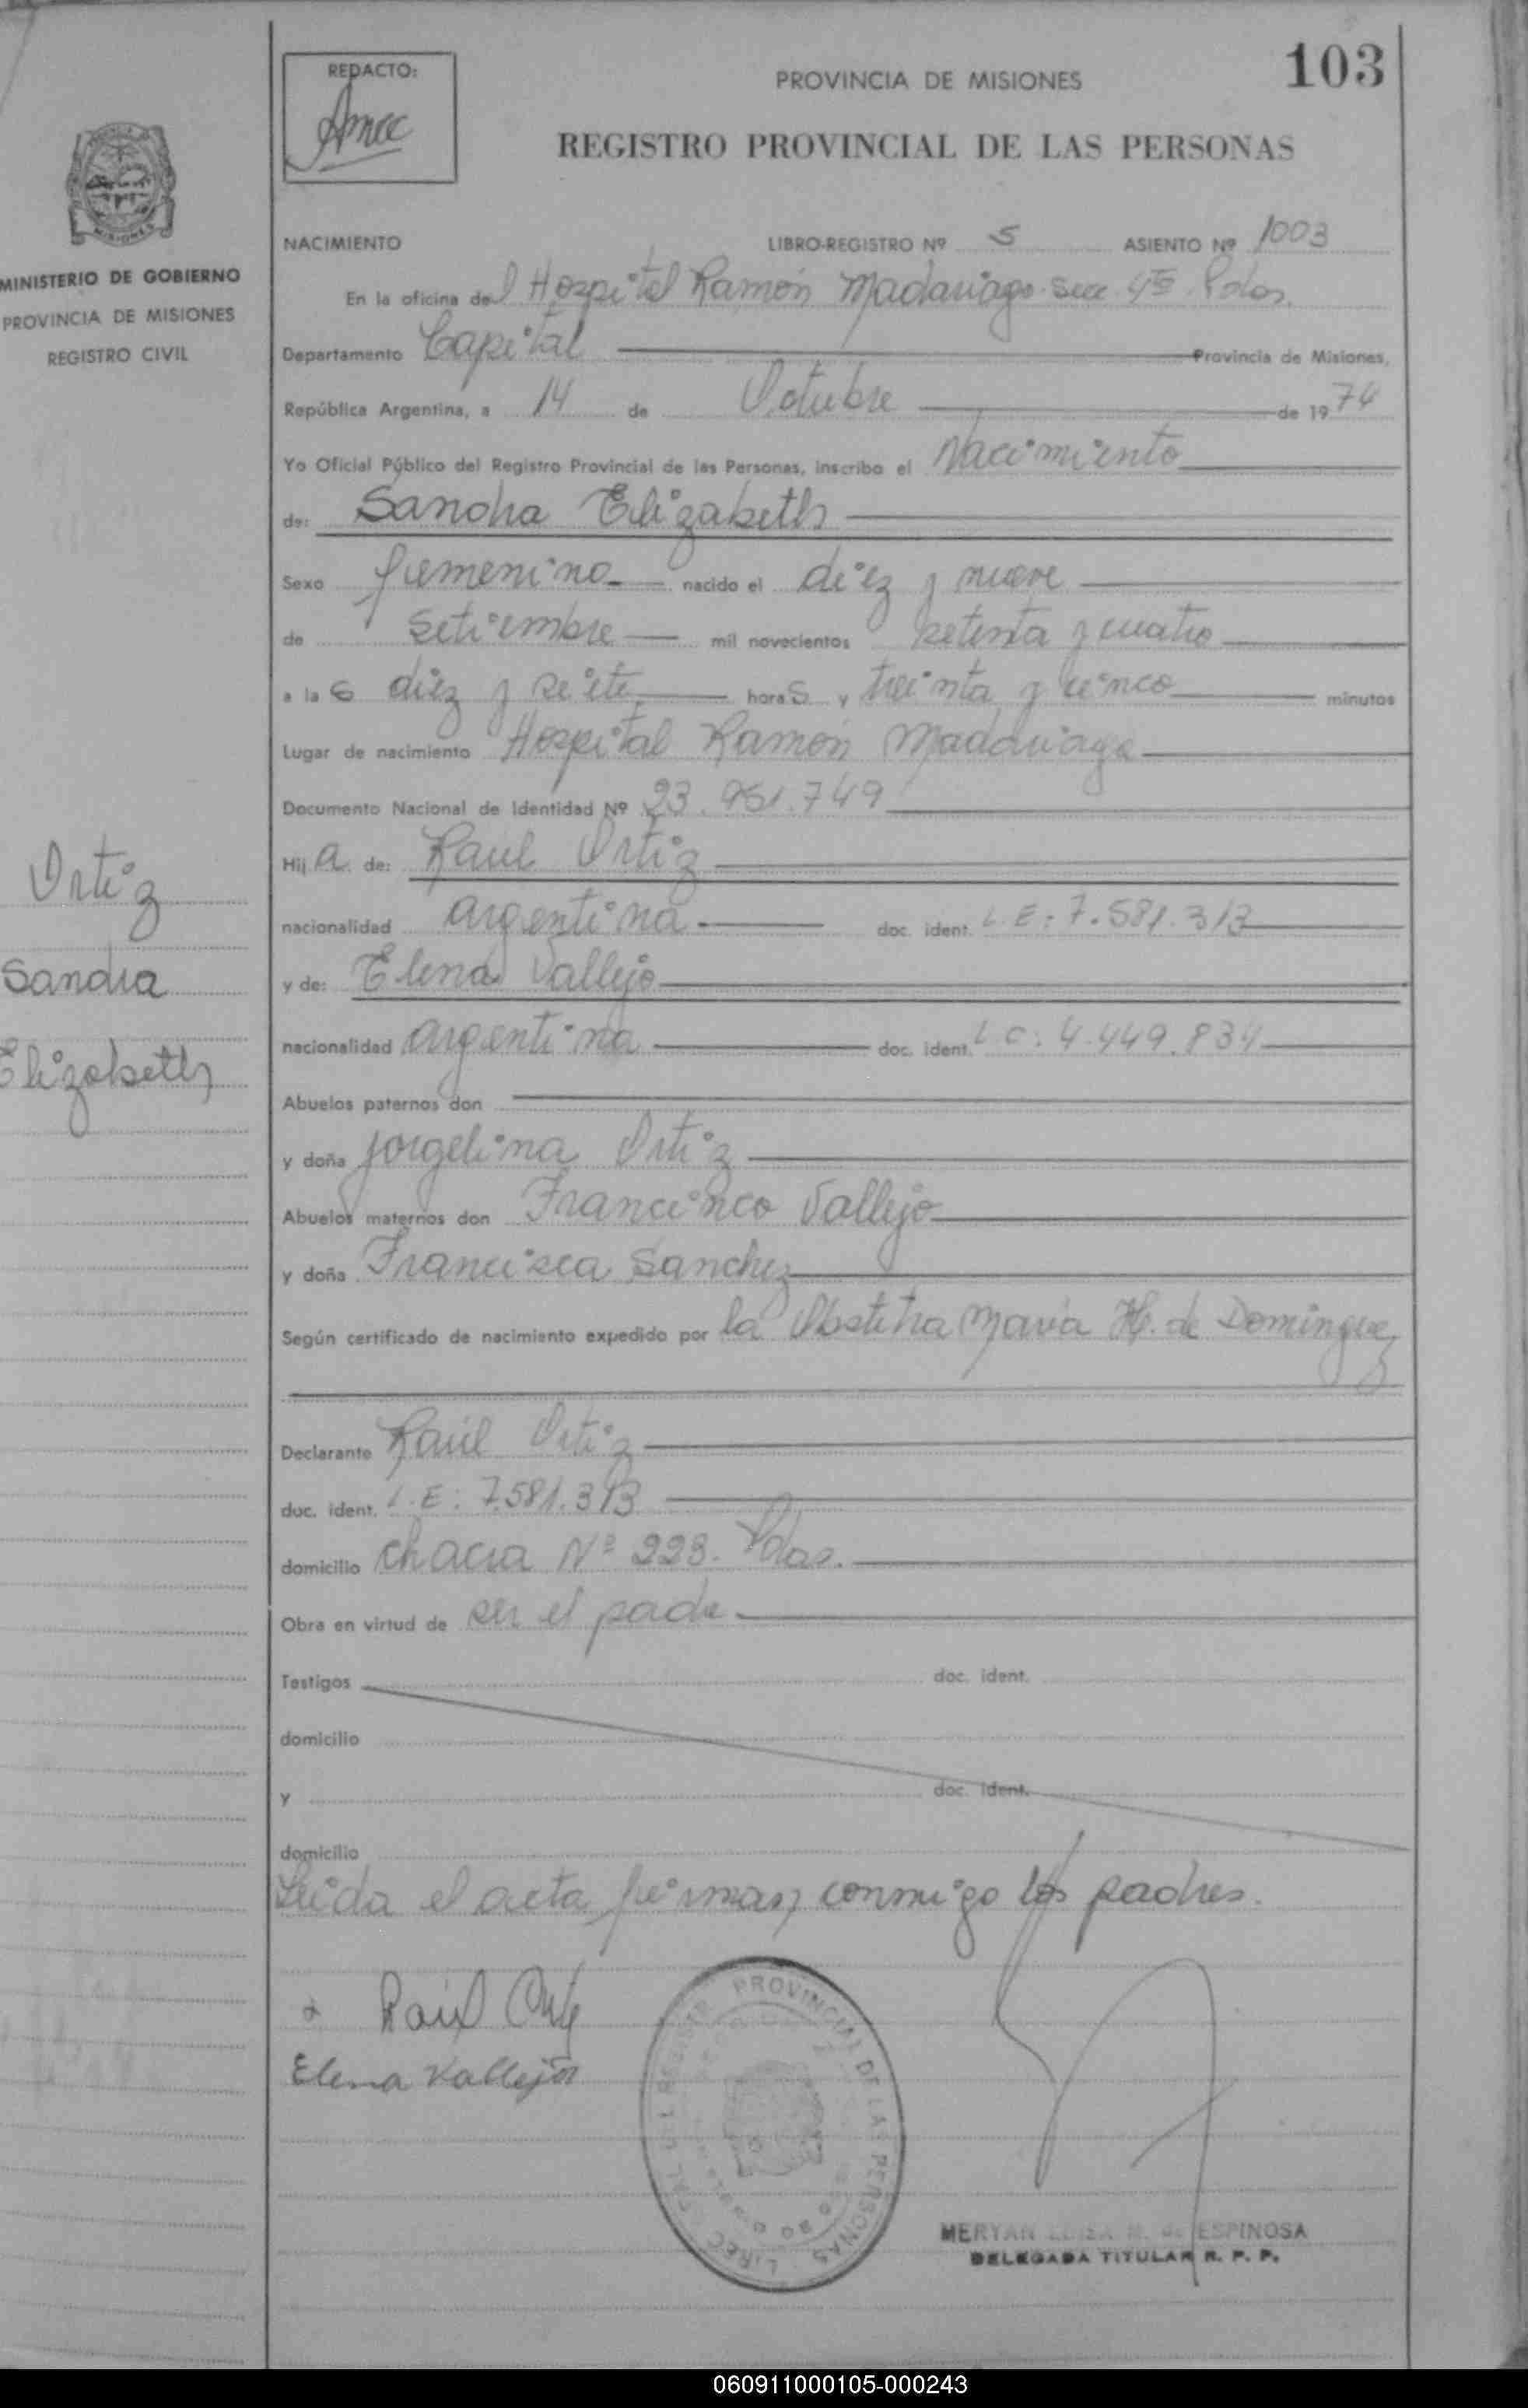 103
REDACTO:
PROVINCIA DE MISIONES
REGISTRO PROVINCIAL DE LAS PERSONAS
MISIONES
MINISTERIO DE GOBIERNO
PROVINCIA DE MISIONES
REGISTRO CIVIL
NACIMIENTO LIBRO-REGISTRO Nº 5 ASIENTO Nº 1003
En la oficina del Hospital Ramón Madariaga Secc. 4ta Pdas.
Departamento Capital Provincia de Misiones,
República Argentina, a 14 de Octubre de 1974
Yo Oficial Público del Registro Provincial de las Personas, inscribo el Nacimiento
de: Sandra Elizabeth
Sexo femenino nacido el diez y nueve
de Setiembre mil novecientos setenta y cuatro
a las diez y siete horas y treinta y cinco minutos
Lugar de nacimiento Hospital Ramón Madariaga
Documento Nacional de Identidad Nº 23.951.749
Hija de: Raul Ortiz
nacionalidad argentina doc. ident. L.E: 7.581.313
y de: Elena Vallejo
nacionalidad argentina doc. ident. L.C: 4.449.834
Abuelos paternos don
y doña Jorgelina Ortiz
Abuelos maternos don Francisco Vallejo
y doña Francisca Sanchez
Según certificado de nacimiento expedido por la Obstetra Maria H. de Dominguez
Declarante Raúl Ortiz
doc. ident. L.E: 7.581.313
domicilio chacra Nº 223. Pdas.
Obra en virtud de ser el padre
Testigos doc. ident.
domicilio
y doc. ident.
domicilio
Leida el acta firman conmigo los padres.
Raúl Ortiz
Elena Vallejos
Ortiz
Sandra
Elizabeth
PROVINCIAL DE LAS PERSONAS
MERYAN LUISA M. de ESPINOSA
DELEGADA TITULAR R. P. P.
060911000105-000243